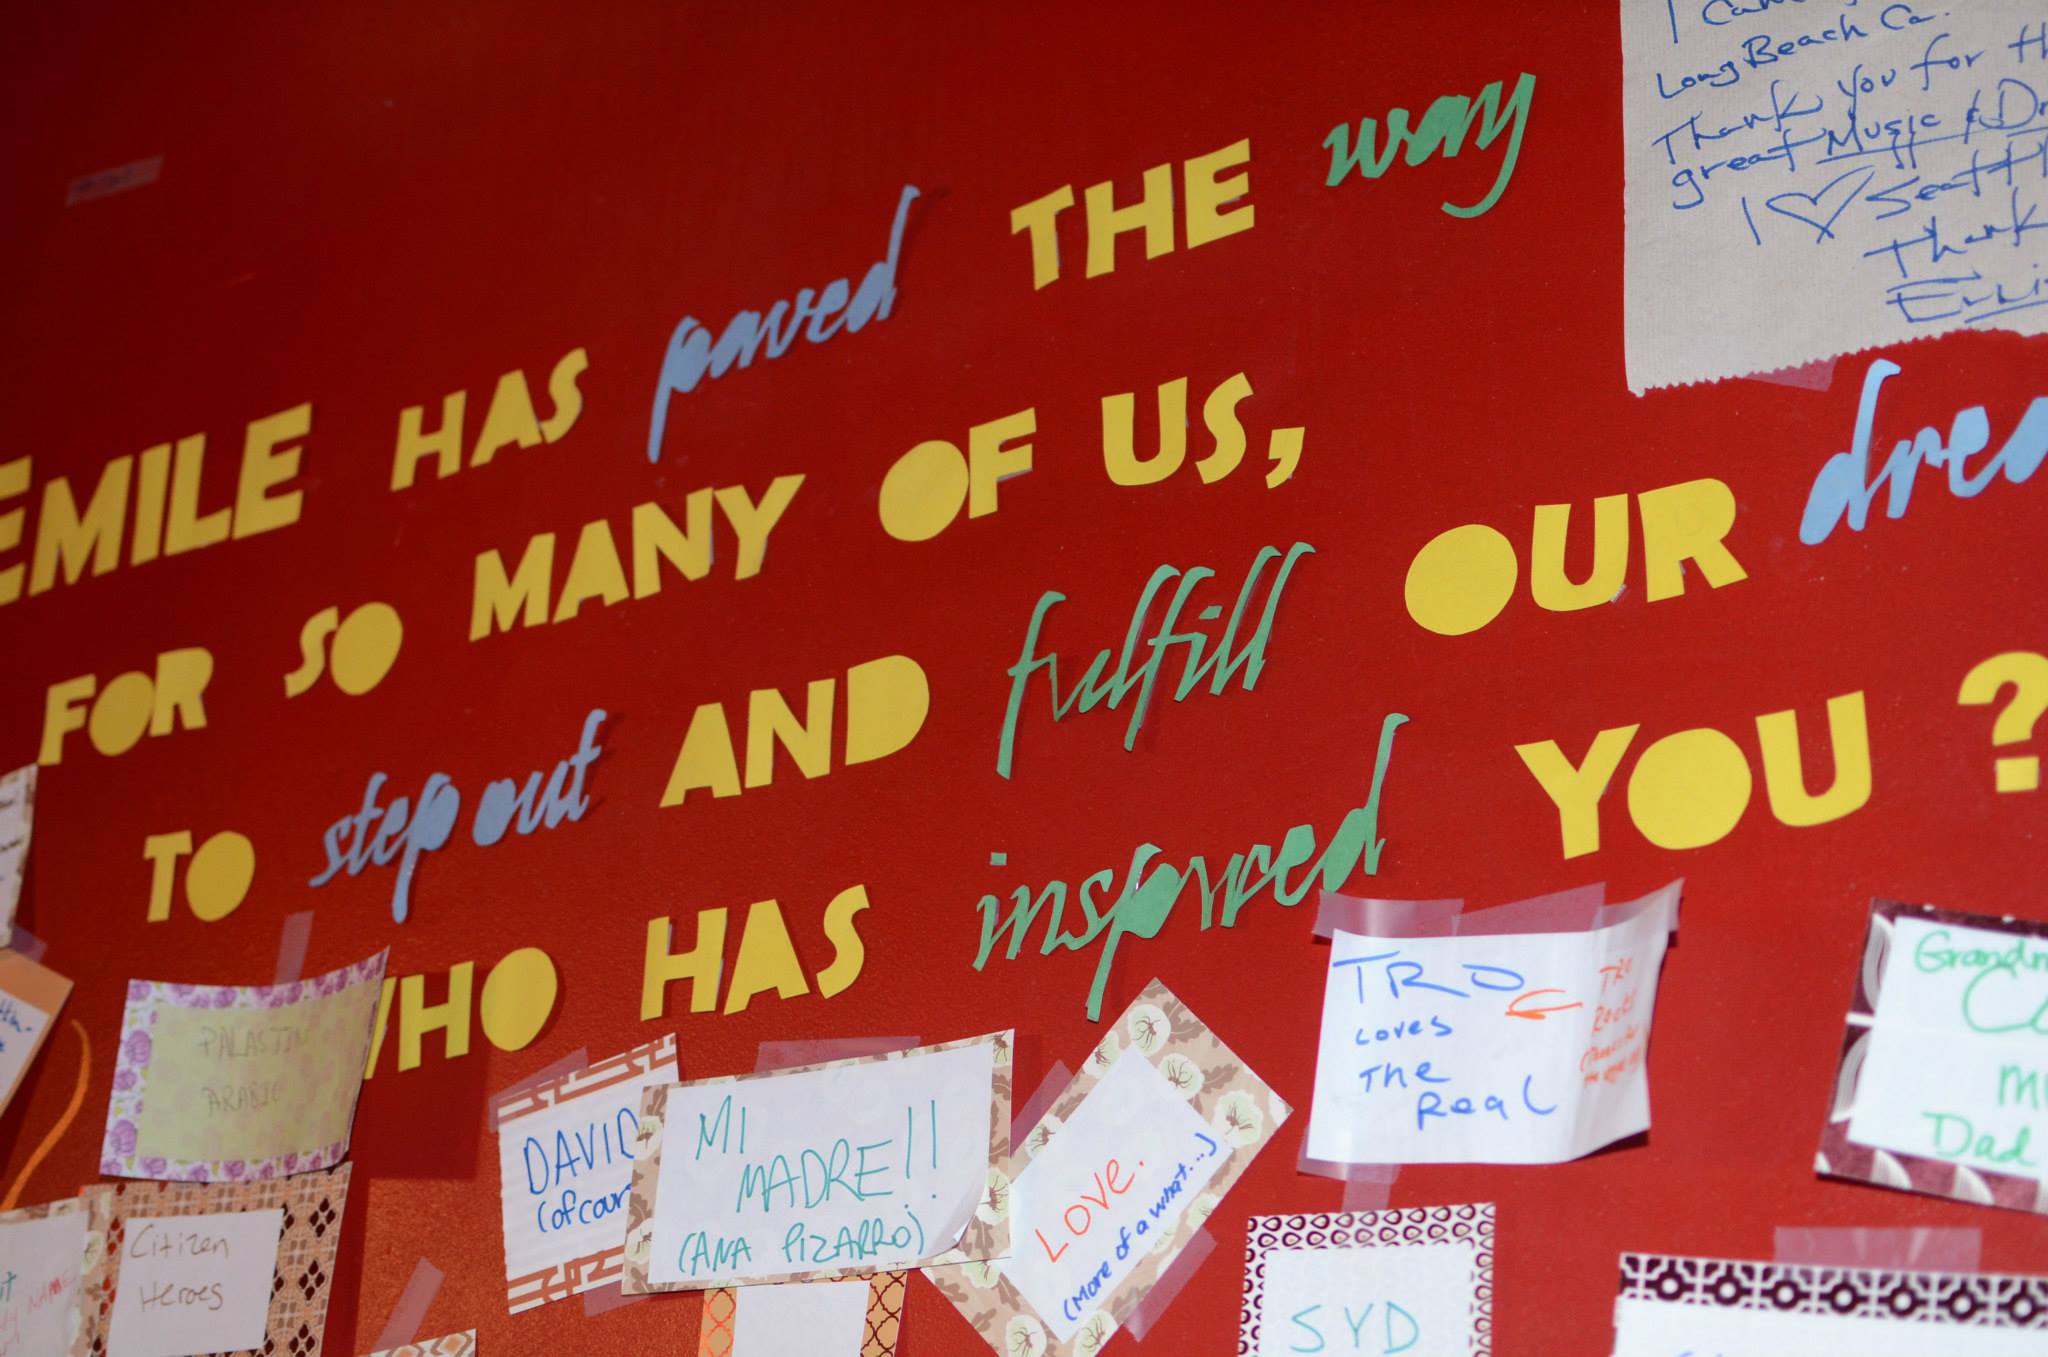 EMILE HAS paved THE way
FOR SO MANY OF US,
TO step out AND fulfill OUR drea
WHO HAS inspired YOU ?
Long Beach Ca.
Thank you for th
great Music & Dr
I ♡ Seattl
Thank
Erni
PALASTIN
ARABIC
Citizen
Heroes
DAVID
(of cour
MI
MADRE!!
(ANA PIZARRO)
LOVE.
(More of a what...)
TRO
Loves
The
Real
TRO
Rocks
SYD
Grandm
my
Dad